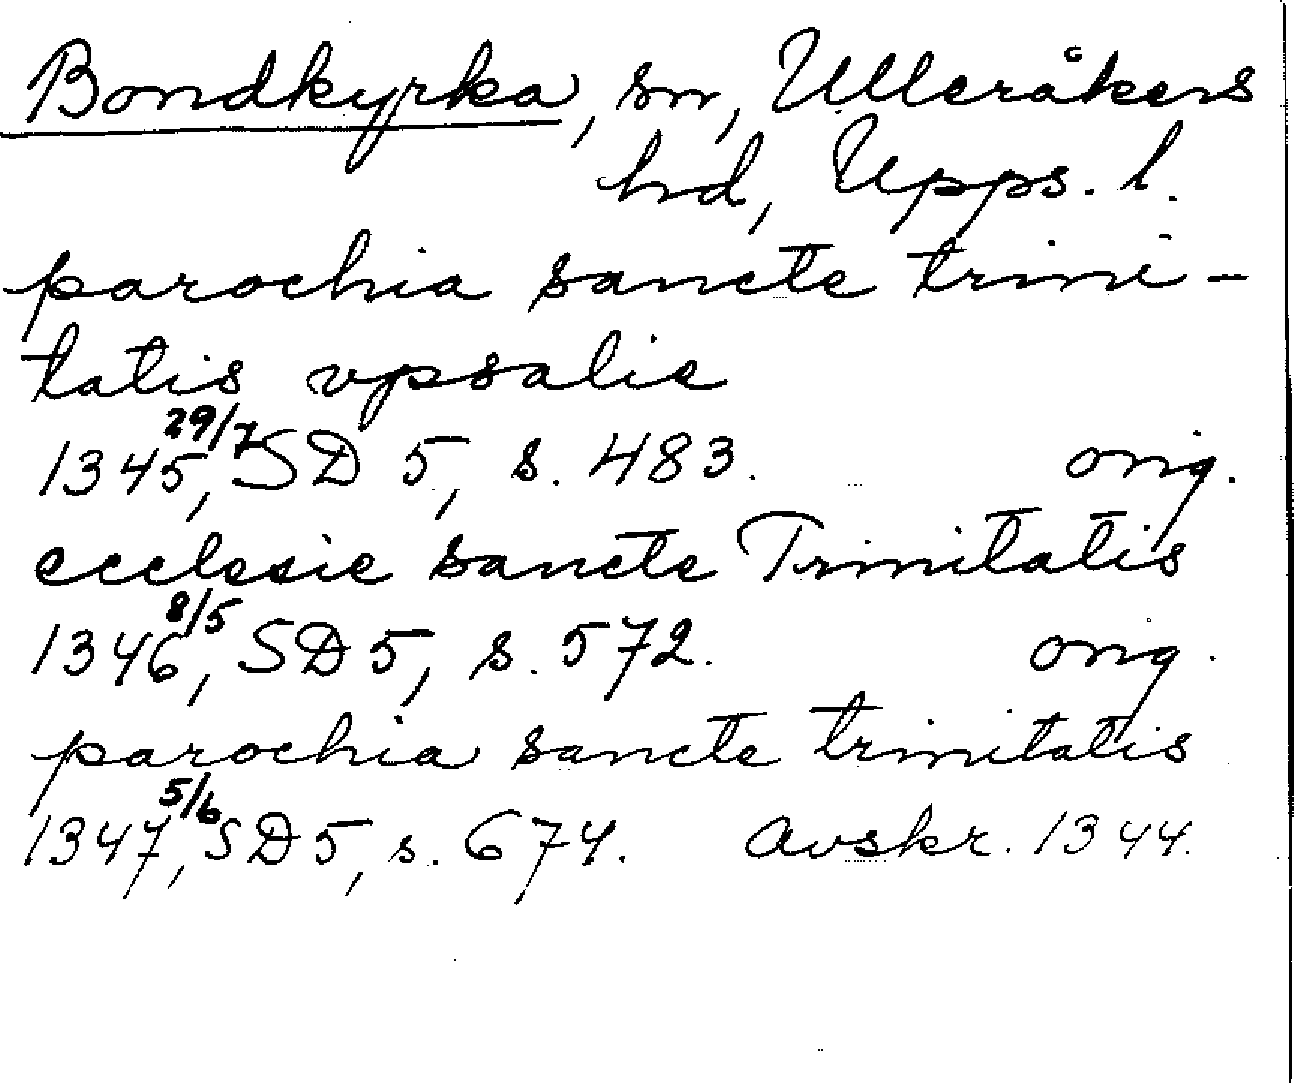 Bondkyrka, sn, Ulleråkers
hd, Upps. l.
parochia sancte trini-
tatis vpsalie
1345, 29/7 SD 5, s. 483. orig.
ecclesie sancte Trinitatis
1346, 8/5 SD 5, s. 572. orig.
parochia sancte trinitatis
1347, 5/6 SD 5, s. 674. Avskr. 1344.